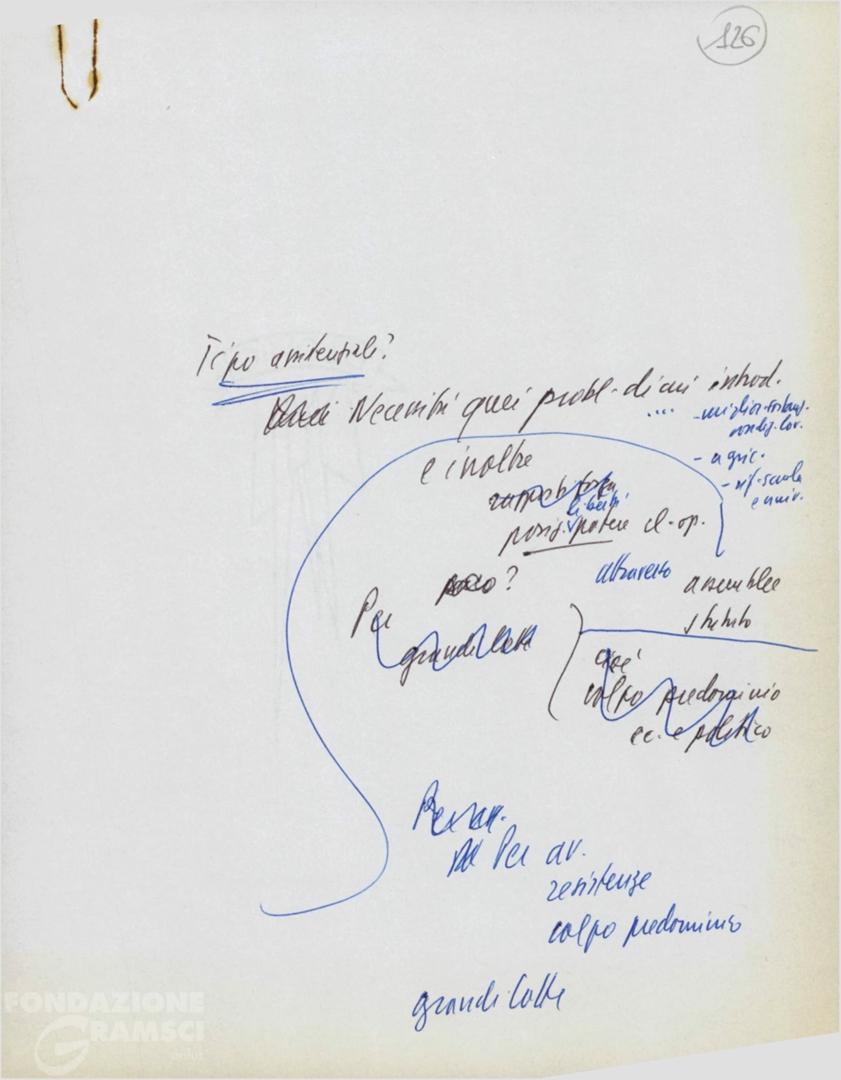 126
Tipo assistenziale?
Necessità quei probl. di cui introd.
....
- miglior.
condiz. lav.
- agric.
- rif. scuola
e univ.
e inoltre
rapporti forza
libertà
posiz. potere cl. op.
poco?
attraverso assemblee
statuto
Per
grandi lotte
cioè
colpo predominio
ec. e politico
Per av.
resistenze
colpo predominio
grandi lotte
FONDAZIONE
GRAMSCI